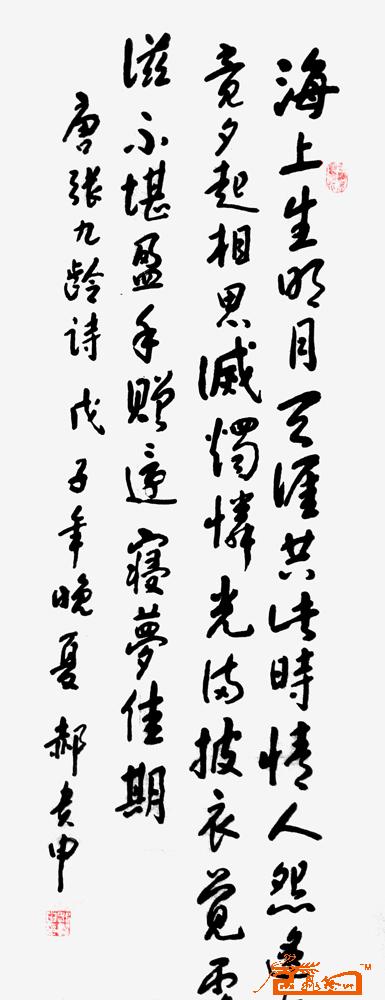 海上生明月天涯共此時情人怨遙
竟夕起相思滅燭憐光滿披衣覺露
滋不堪盈手贈還寢夢佳期
唐張九齡詩 戊子年晚夏 郝貴申